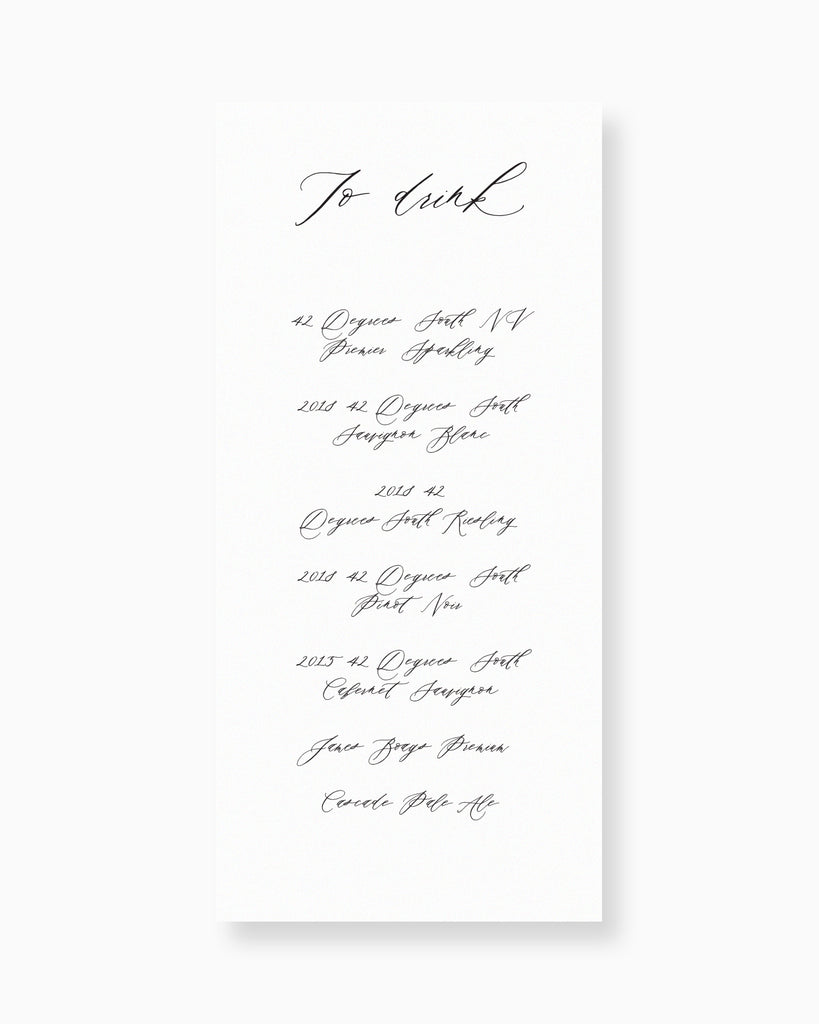 To drink
42 Degrees South NV
Premier Sparkling
2018 42 Degrees South
Sauvignon Blanc
2018 42
Degrees South Riesling
2018 42 Degrees South
Pinot Noir
2015 42 Degrees South
Cabernet Sauvignon
James Boags Premium
Cascade Pale Ale